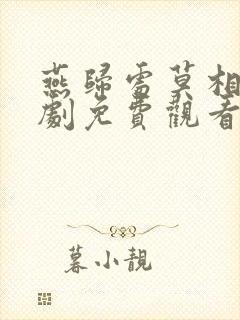 燕歸雪莫相
劇免費觀看
暮小靚